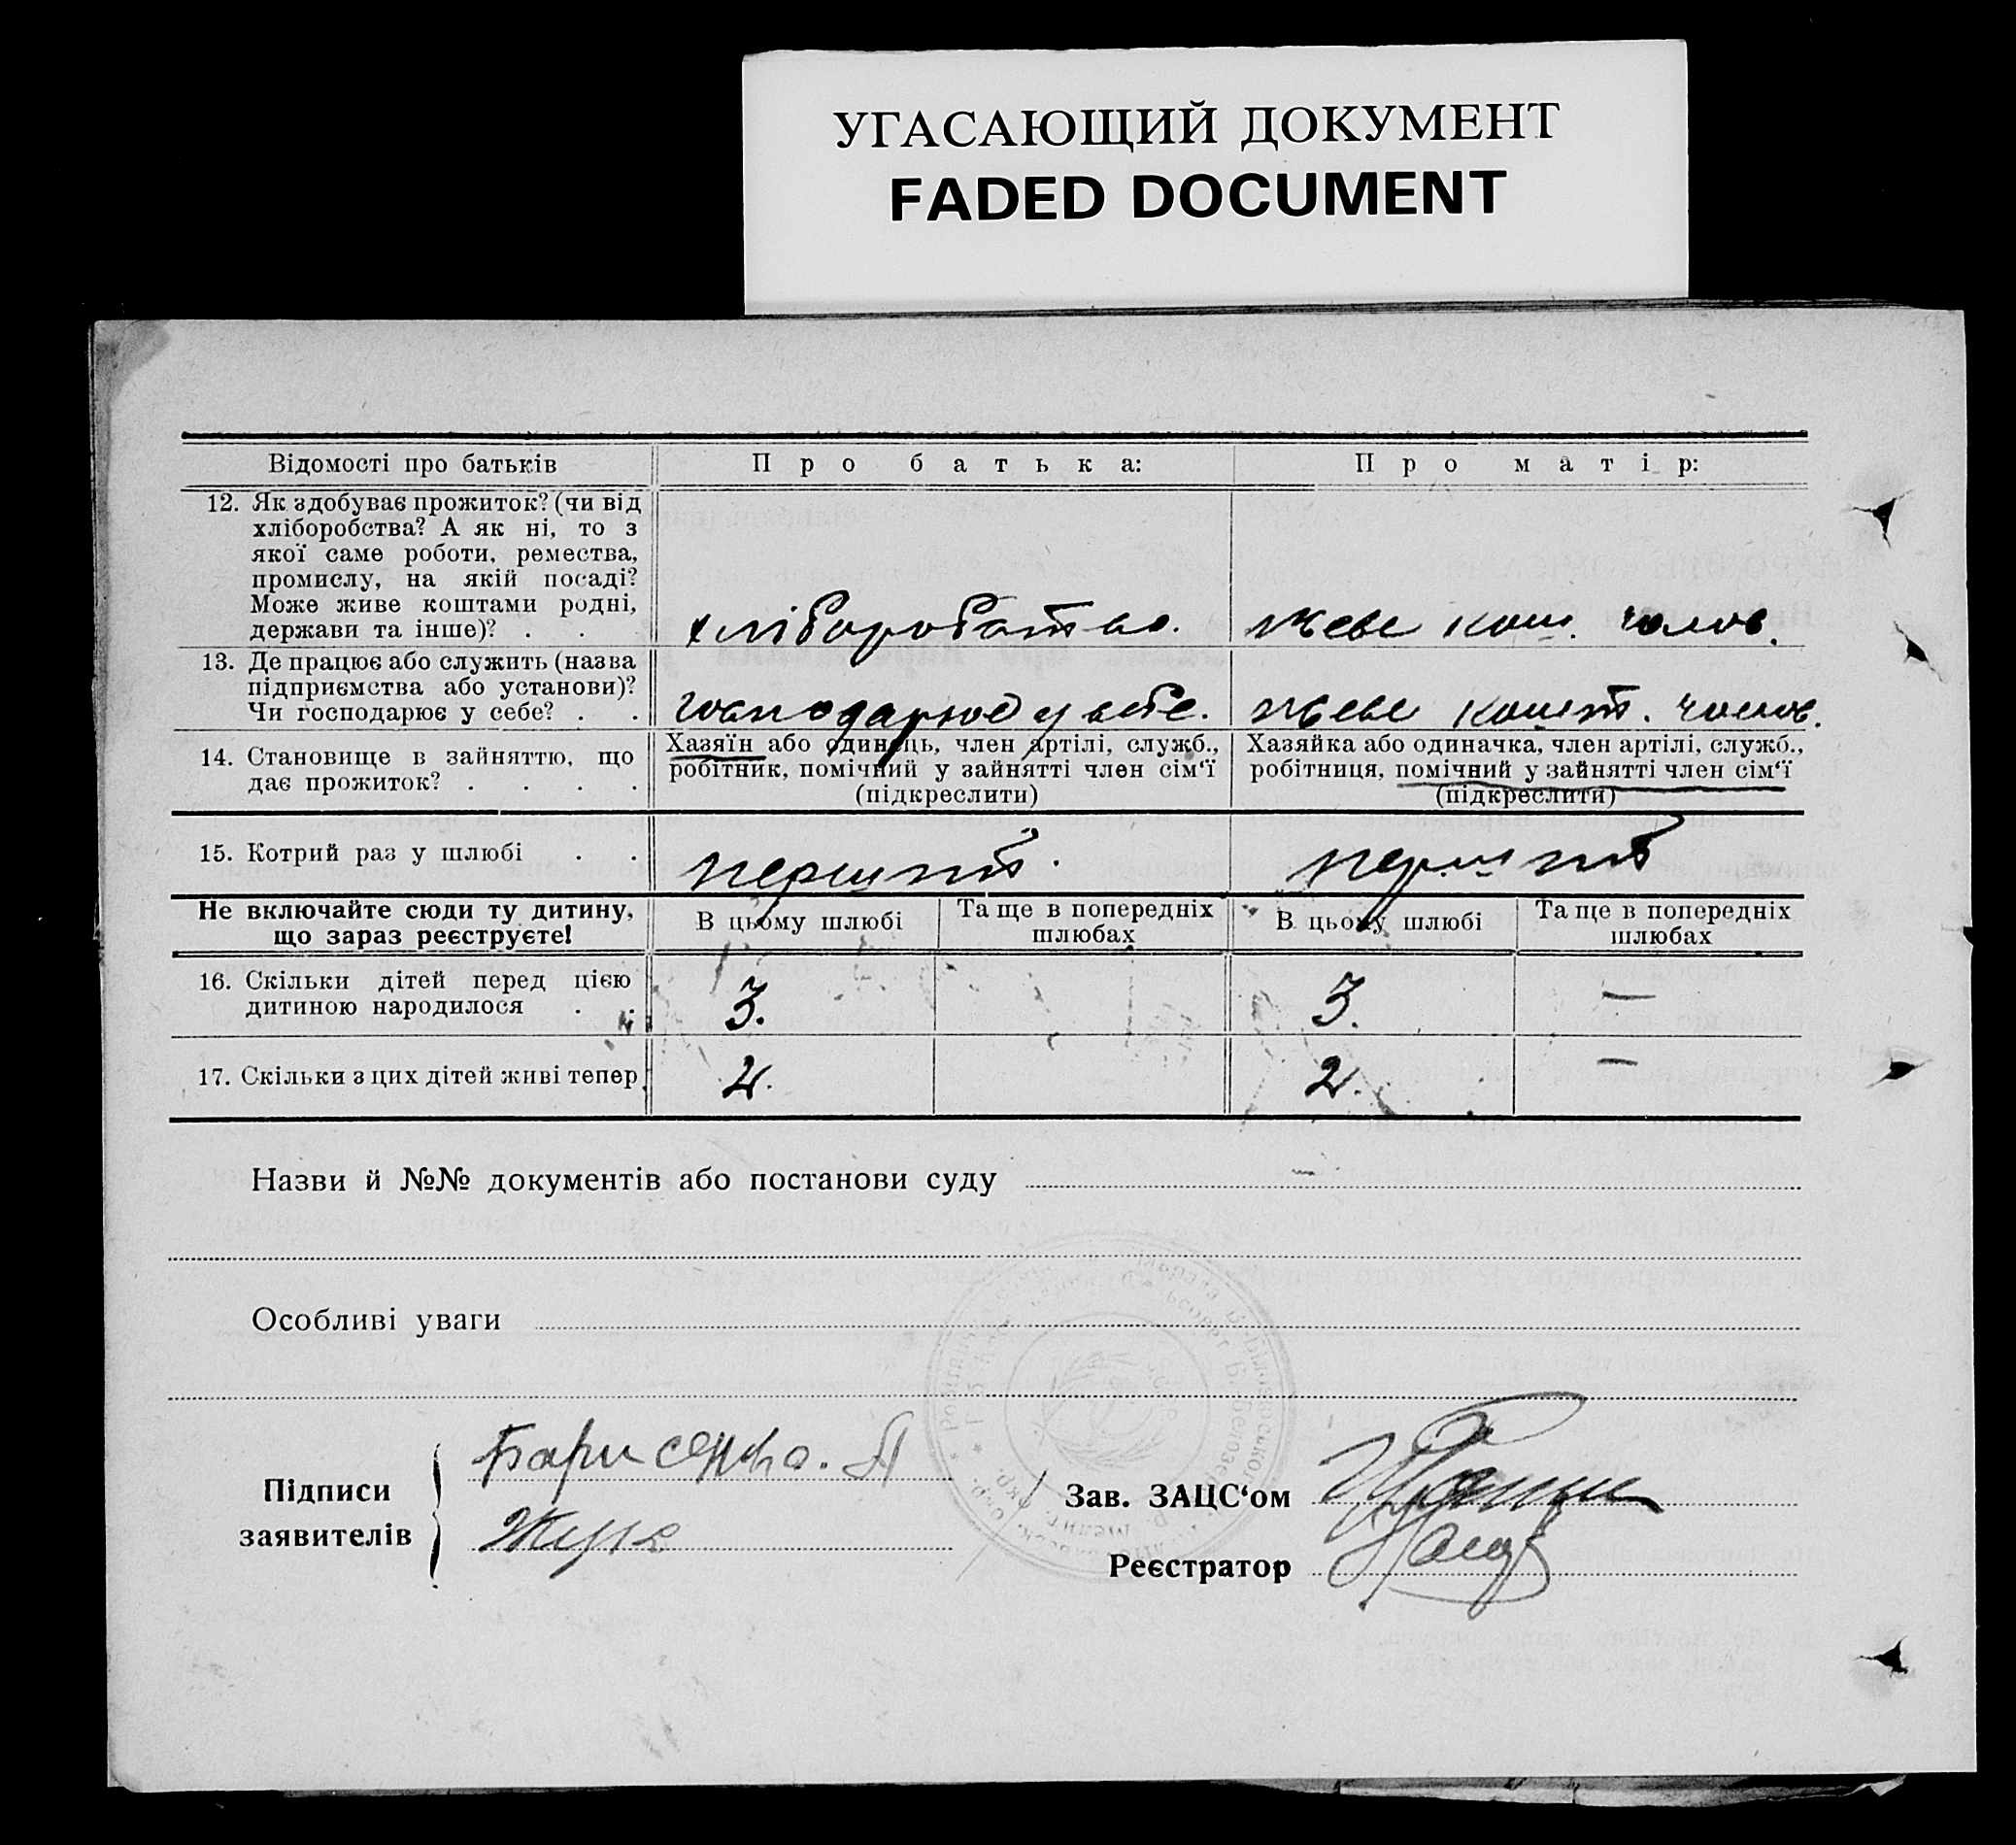 УГАСАЮЩИЙ ДОКУМЕНТ
FADED DOCUMENT
Відомості про батьків
Про батька:
Про матір:
12. Як здобуває прожиток? (чи від
хліборобства? А як ні, то з
якої саме роботи, ремества,
промислу, на якій посаді?
Може живе коштами родні,
держави та інше)? . .
хліборобство.
живе кош. чолов.
13. Де працює або служить (назва
підприємства або установи)?
Чи господарює у себе? . .
господарює у себе.
живе кошт. чолов.
14. Становище в зайняттю, що
дає прожиток? . . . .
Хазяїн або одинець, член артілі, служб.,
робітник, помічний у зайнятті член сім‘ї
(підкреслити)
Хазяйка або одиначка, член артілі, служб.,
робітниця, помічний у зайнятті член сім‘ї
(підкреслити)
15. Котрий раз у шлюбі . .
перший.
перший
Не включайте сюди ту дитину,
що зараз реєструєте!
В цьому шлюбі
Та ще в попередніх
шлюбах
В цьому шлюбі
Та ще в попередніх
шлюбах
16. Скільки дітей перед цією
дитиною народилося . .
3.
3.
—
17. Скільки з цих дітей живі тепер
2.
2.
—
Назви й №№ документів або постанови суду —
Особливі уваги
Підписи
заявителів
Борисенко. П
Жук
Зав. ЗАЦС‘ом
Реєстратор